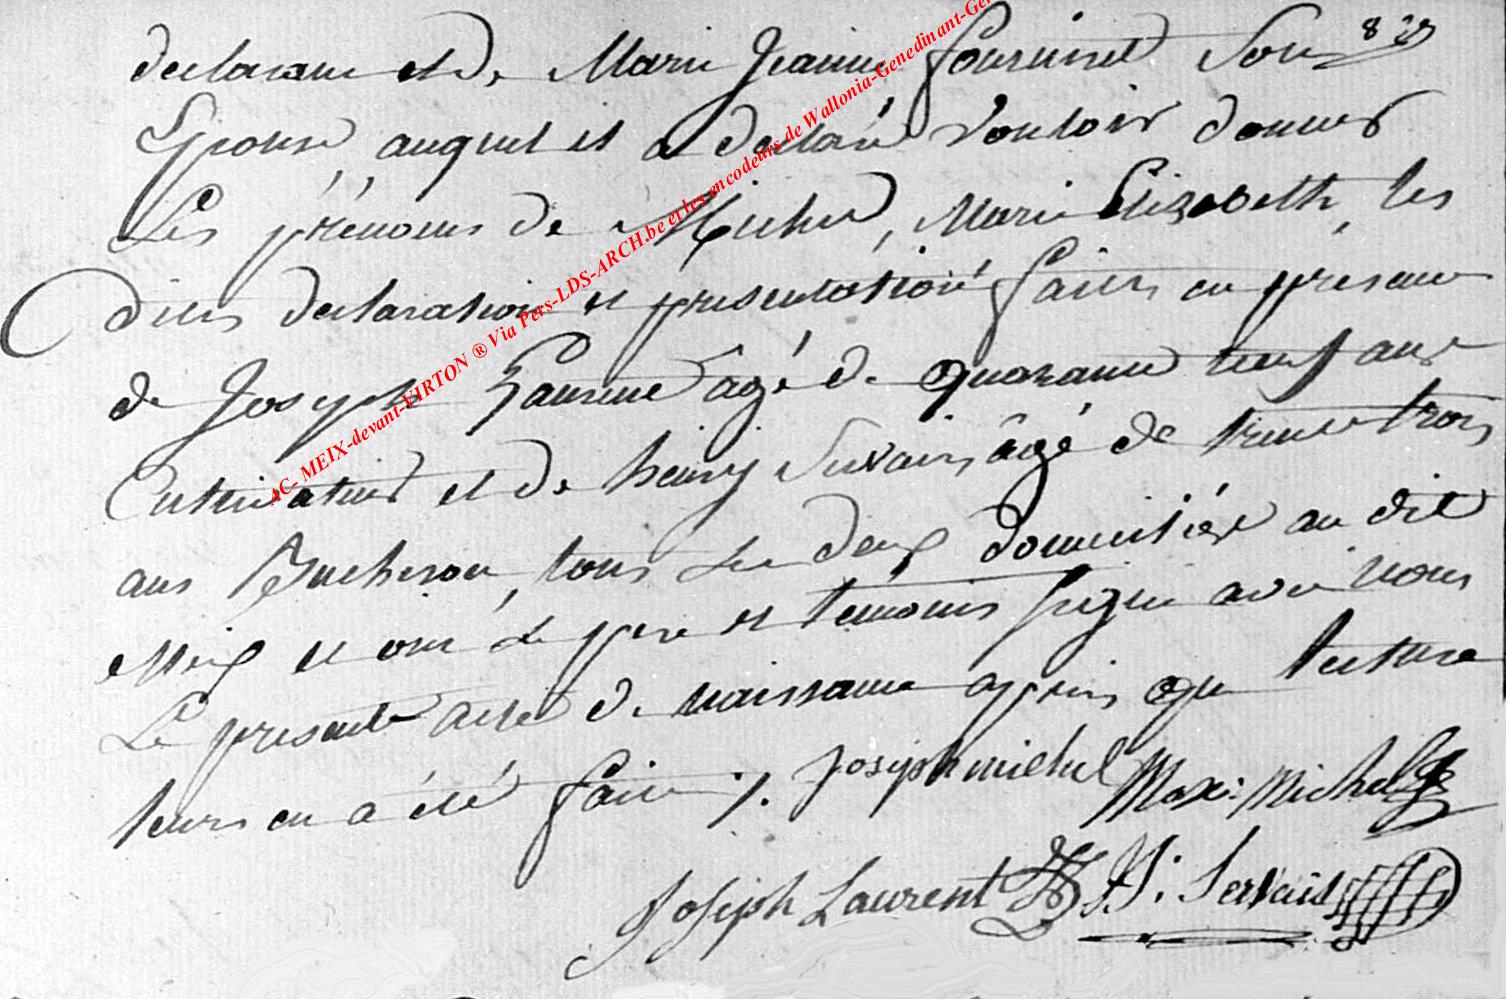 declarant et de Marie Jeanne fourinet Son
Epouse auquel il a déclaré Vouloir donner
Les prénoms de Michel, Marie Elizabeth, les
dites declaration et presentation faites en presence
de Joseph Laurent agé de quarante neuf ans
Cultivateur et de henry Servais âgé de trente trois
ans Bucheron, tous les deux domiciliés au dit
Meix et ont le pere et temoins signé avec nous
Le present acte de naissance après que lecture
leurs en a été faite ./. Joseph michel Max: Michel
Joseph Laurent H: Servais
AC. MEIX-devant-VIRTON ® Via Pers-LDS-ARCH.be et les encodeurs de Wallonia-Genedinant-Gen